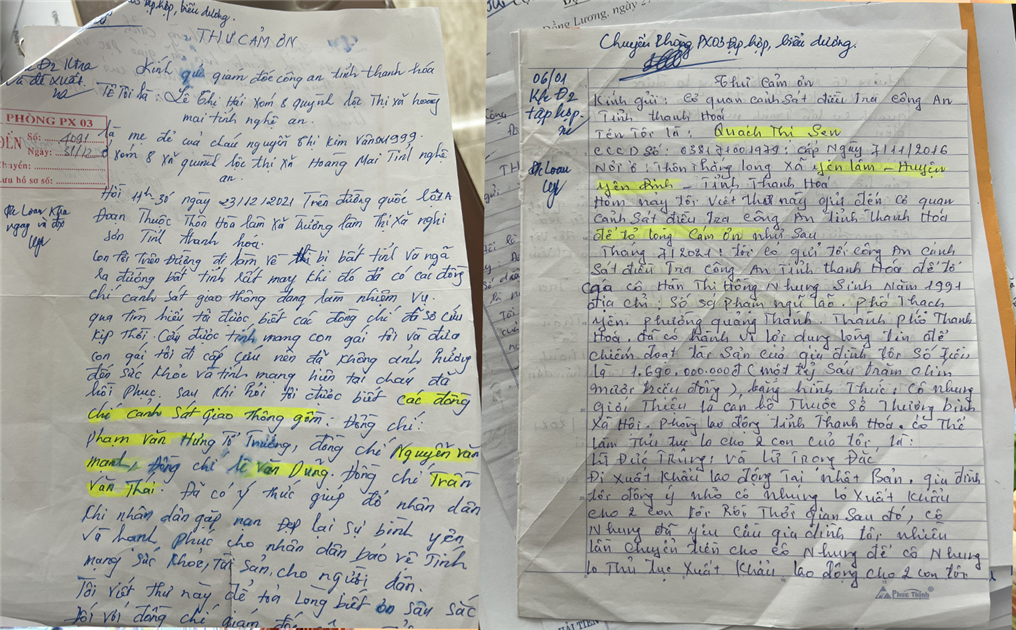 tập hợp, biểu dương.
THƯ CẢM ƠN
Đ2 Ktra
và đề xuất
Kính gửi giám đốc công an tỉnh thanh hóa
Tê Tôi là: Lê Thị Hải Xóm 8 quỳnh lộc Thị xã hoàng
mai tỉnh nghệ an.
PHÒNG PX 03
ĐẾN
Số: 4091
Ngày: 31/12
Chuyển:
Lưu hồ sơ số:
là mẹ đẻ của cháu nguyễn thị kim Vân 1999.
ở xóm 8 xã quỳnh lộc thị xã Hoàng Mai Tỉnh nghệ
an.
Hồi 11h30 ngày 23/12/2021 Trên đường quốc lộ 1A
Đoạn Thuộc Thôn Hòa lâm xã Trường lâm Thị xã nghi
sơn Tỉnh thanh hóa.
con tôi Trên đường đi làm về thì bị bất tỉnh và ngã
ra đường bất tỉnh rất may khi đó đó có các đồng
chí cảnh sát giao thông đang làm nhiệm vụ.
qua tìm hiểu tôi được biết các đồng chí đã sơ cứu
kịp thời. Cứu được tính mạng con gái tôi và đưa
con gái tôi đi cấp cứu nên đã không anh hưởng
đến sức khỏe và tính mạng hiện tại cháu đã
hồi phục. sau khi hỏi tôi được biết các đồng
chí cảnh sát Giao thông gồm: Đồng chí:
Phạm Văn Hưng Tổ Trưởng, đồng chí Nguyễn văn
mạnh, Đồng chí lê Văn Dũng. Đồng chí Trần
Văn Thái. Đã có ý thức giúp đỡ nhân dân
khi nhân dân gặp nạn Đẹp lại sự bình yên
và hạnh phúc cho nhân dân bảo vệ Tính
mạng, sức khỏe, tài sản, cho người dân.
Tôi viết thư này để tỏa lòng biết ơn sâu sắc
Đối với đồng chí giám đốc
Đồng Lương, ngày 21
Chuyển Phòng PX03 tập hợp, biểu dương.
06/01
Kh Đ2
tập hợp.
Thư Cảm ơn
Kính gửi: Cơ quan cảnh sát điều Tra Công An
Tỉnh thanh Hoá
Tên Tôi là: Quách Thị Sen
CCCD Số: 038181001979: cấp Ngày 7/11/2016
Nơi ở: thôn thăng long Xã Yên lâm - Huyện
Yên Định - Tỉnh Thanh Hoá
Hôm nay tôi Viết thư này gửi đến Cơ quan
Cảnh Sát điều Tra Công An Tỉnh thanh Hoá
để tỏ lòng Cảm ơn như Sau
Tháng 7/2021 tôi có gửi tới công An cảnh
Sát điều Tra công An Tỉnh Thanh Hoá để tố
cáo cô Hàn Thị Hồng Nhung Sinh Năm 1991
địa chỉ: Số 39 Phạm ngũ lão - Phố Thạch
Yên, phường quảng Thành, Thành phố Thanh
Hoá, đã có hành vi lợi dụng lòng Tin để
chiếm đoạt tài sản của gia đình tôi Số tiền
là 1.690.000.000đ (một tỷ Sáu trăm chín
mươi triệu đồng), bằng hình Thức, Cô Nhung
giới Thiệu là cán bộ Thuộc Sở Thương binh
Xã Hội - phòng lao động tỉnh Thanh Hoá. có Thể
làm Thủ tục lo cho 2 con của tôi là:
Lữ Đức Trung; Và Lữ Trọng Đắc
Đi Xuất Khẩu lao động Tại Nhật Bản, gia đình
tôi đồng ý nhờ cô Nhung lo Xuất Khẩu
cho 2 con tôi Rồi Thời gian Sau đó, cô
Nhung đã yêu Cầu gia đình tôi nhiều
lần Chuyển tiền cho cô Nhung để cô Nhung
lo Thủ tục Xuất Khẩu lao động cho 2 con tôi
Phúc Thịnh
HẢI TIẾN